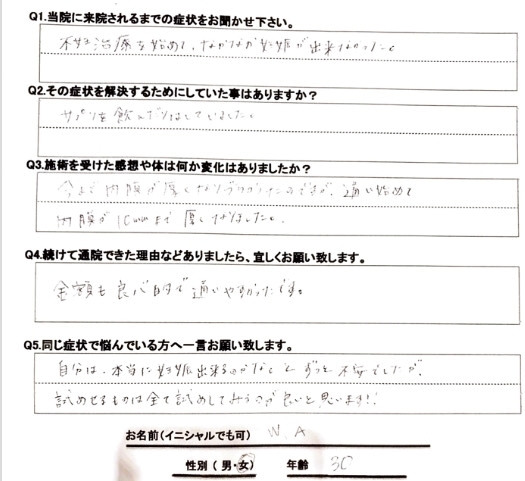 Q1.当院に来院されるまでの症状をお聞かせ下さい。
不妊治療を始めて、なかなか妊娠が出来なかったこと
Q2.その症状を解決するためにしていた事はありますか？
サプリを飲んだりはしていました。
Q3.施術を受けた感想や体は何か変化はありましたか？
今まで内膜が厚くなりづらかったのですが、通い始めて
内膜が10mmまで厚くなりました。
Q4.続けて通院できた理由などありましたら、宜しくお願い致します。
金額も良心的で通いやすかったです。
Q5.同じ症状で悩んでいる方へ一言お願い致します。
自分は、本当に妊娠出来るのかなとずっと不安でしたが、
試めせるものは全て試めしてみるのが良いと思います!!
お名前(イニシャルでも可) W.A
性別 ( 男・女) 年齢 30